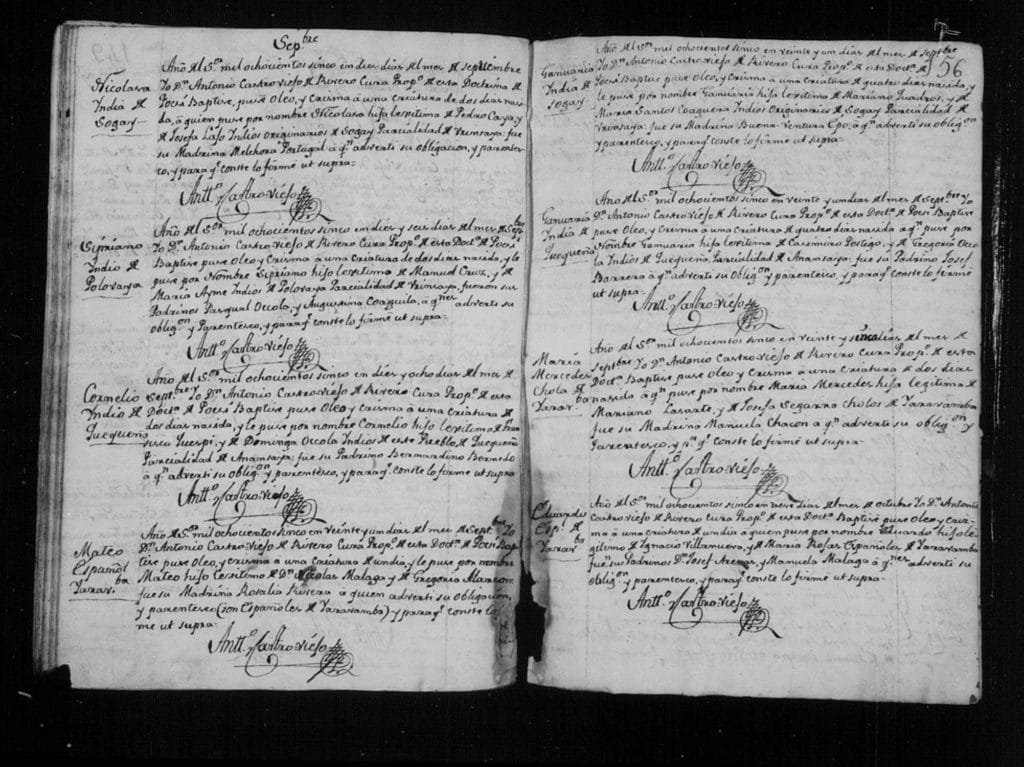 Sepbre
Nicolasa
India de
Sogay
Año del Sor mil ochocientos sinco en dies dias del mes de septiembre
Yo Dn Antonio Castroviejo de Rivero Cura Propo de esta Doctrina de
Pocsi Baptise, puse Oleo, y Crisma à una Criatura de dos dias nasi
da, à quien puse por nombre Nicolasa hija lexitima de Pedro Caya, y
de Josefa Laso Indios Originarios de Sogay Parcialidad de Vrinsaya: fue
su Madrina Melchora Portugal à qn adverti su obligacion, y parentes
co, y para qe conste lo firmé ut supra-
Antto Castroviejo
Sipriano
Indio de
Polovaya
Año del Sor mil ochocientos sinco en dies y seis dias del mes de Sepbre
Yo Dn Antonio Castroviejo de Rivero Cura Propo de esta Docta de Pocsi
Baptise puse Oleo y Crisma à una Criatura de dos dias nasida, y le
puse por Nombre Sipriano hijo lexitimo de Manuel Cruz, y de
Maria Ayme Indios de Polovaya Parcialidad de Vrinsaya, fueron sus
Padrinos Pasqual Occola, y Augustina Coaguila, à qnes adverti su
obligon y Parentesco, y para qe conste lo firmé ut supra-
Antto Castroviejo
Cornelio
Indio de
Puequeña
Año del Sor mil ochocientos sinco en dies y ocho dias del mes de
Septbre Yo Dn Antonio Castroviejo de Rivero Cura Propo de esta
Docta de Pocsi Baptise puse Oleo y Crisma à una Criatura de
dos dias nasida, y le puse por nombre Cornelio hijo lexitimo de Fran
sisco Quispi, y de Dominga Occola Indios de este Pueblo de Puequeña
Parcialidad de Anansaya: fue su Padrino Bernardino Bermedo
à qn adverti su obligon y parentesco, y para qe conste lo firmé ut supra
Antto Castroviejo
Mateo
Español
Yarava
Año del Sor mil ochocientos sinco en veinte y un dias del mes de Septbre Yo
Dn Antonio Castroviejo de Rivero Cura Propo de esta Docta de Pocsi Bap
tise puse Oleo, y crisma à una Criatura de un dia, y le puse por nombre
Mateo hijo lexitimo de Dn Nicolas Malaga y de Gregoria Alarcon
fue su Madrina Rosalia Rivera à quien adverti su obligacion,
y parentesco (son Españoles de Yaravamba) y para qe conste lo fir
me ut supra-
Antto Castroviejo
156
Ganuaria
India de
Sogay
Año del Sor mil ochocientos sinco en veinte y un dias del mes de Septbre
Yo Dn Antonio Castroviejo de Rivero Cura Propo de esta Docta de
Pocsi Baptise puse Oleo, y Crisma à una Criatura de quatro dias nasida, y
le puse por nombre Ganuaria hija lexitima de Mariano Quadros, y de
Maria Santos Coaguera Indios Originarios de Sogay Parcialidad de
Vrinsaya: fue su Madrina Buena Ventura Cpo, à qn adverti su obligon
y parentesco, y para qe conste lo firmé ut supra-
Antto Castroviejo
Ganuaria
India de
Puequeña
Año del Sor mil ochocientos sinco en veinte y un dias del mes de Septbre Yo
Dn Antonio Castroviejo de Rivero Cura Propo de esta Docta de Pocsi Baptise
puse Oleo, y Crisma à una Criatura de quatro dias nasida à qn puse por
Nombre Ganuaria hija lexitima de Carsimiro Postigo, y de Gregoria Occo
la Indios de Puequeña Parcialidad de Anansaya: fue su Padrino Josef
Barrera à qn adverti su obligon y parentesco, y para qe conste lo firmé
ut supra-
Antto Castroviejo
Maria
Mercedes
Chola de
Yarav.ba
Año del Sor mil ochocientos sinco en veinte y sinco dias del mes de
Septbre Yo Dn Antonio Castroviejo de Rivero Cura Propo de esta
Docta Baptise puse Oleo, y Crisma à una Criatura de dos dias
nasida à qn puse por nombre Maria Mercedes hija legitima de
Mariano Lasarte, y de Josefa Segarra Cholos de Yaravamba
fue su Madrina Manuela Chacon à qn adverti su obligon y
Parentesco, y pa qe conste lo firmé ut supra-
Antto Castroviejo
Eduardo
Esp. de
Yarav.ba
Año del Sor mil ochocientos sinco en dies dias del mes de Octubre Yo Dn Antonio
Castroviejo de Rivero Cura Propo de esta Docta Baptisé puse Oleo y Cris
ma à una Criatura de un dia à quien puse por nombre Eduardo hijo le
gitimo de Ignacio Villanueva, y de Maria Rosas Españoles de Yaravamba
fue sus Padrinos Dn Josef y Manuela Malaga à qnes adverti su
obligon y parentesco, y para qe conste lo firmé ut supra-
Antto Castroviejo